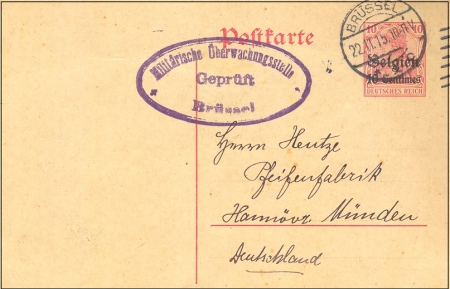 Postkarte
BRÜSSEL
10 10
Belgien
10 Centimes
DEUTSCHES REICH
Militärische Überwachungsstelle
Geprüft
Brüssel
Herrn Hentze
Pfeifenfabrik
Hannöv. Münden
Deutschland